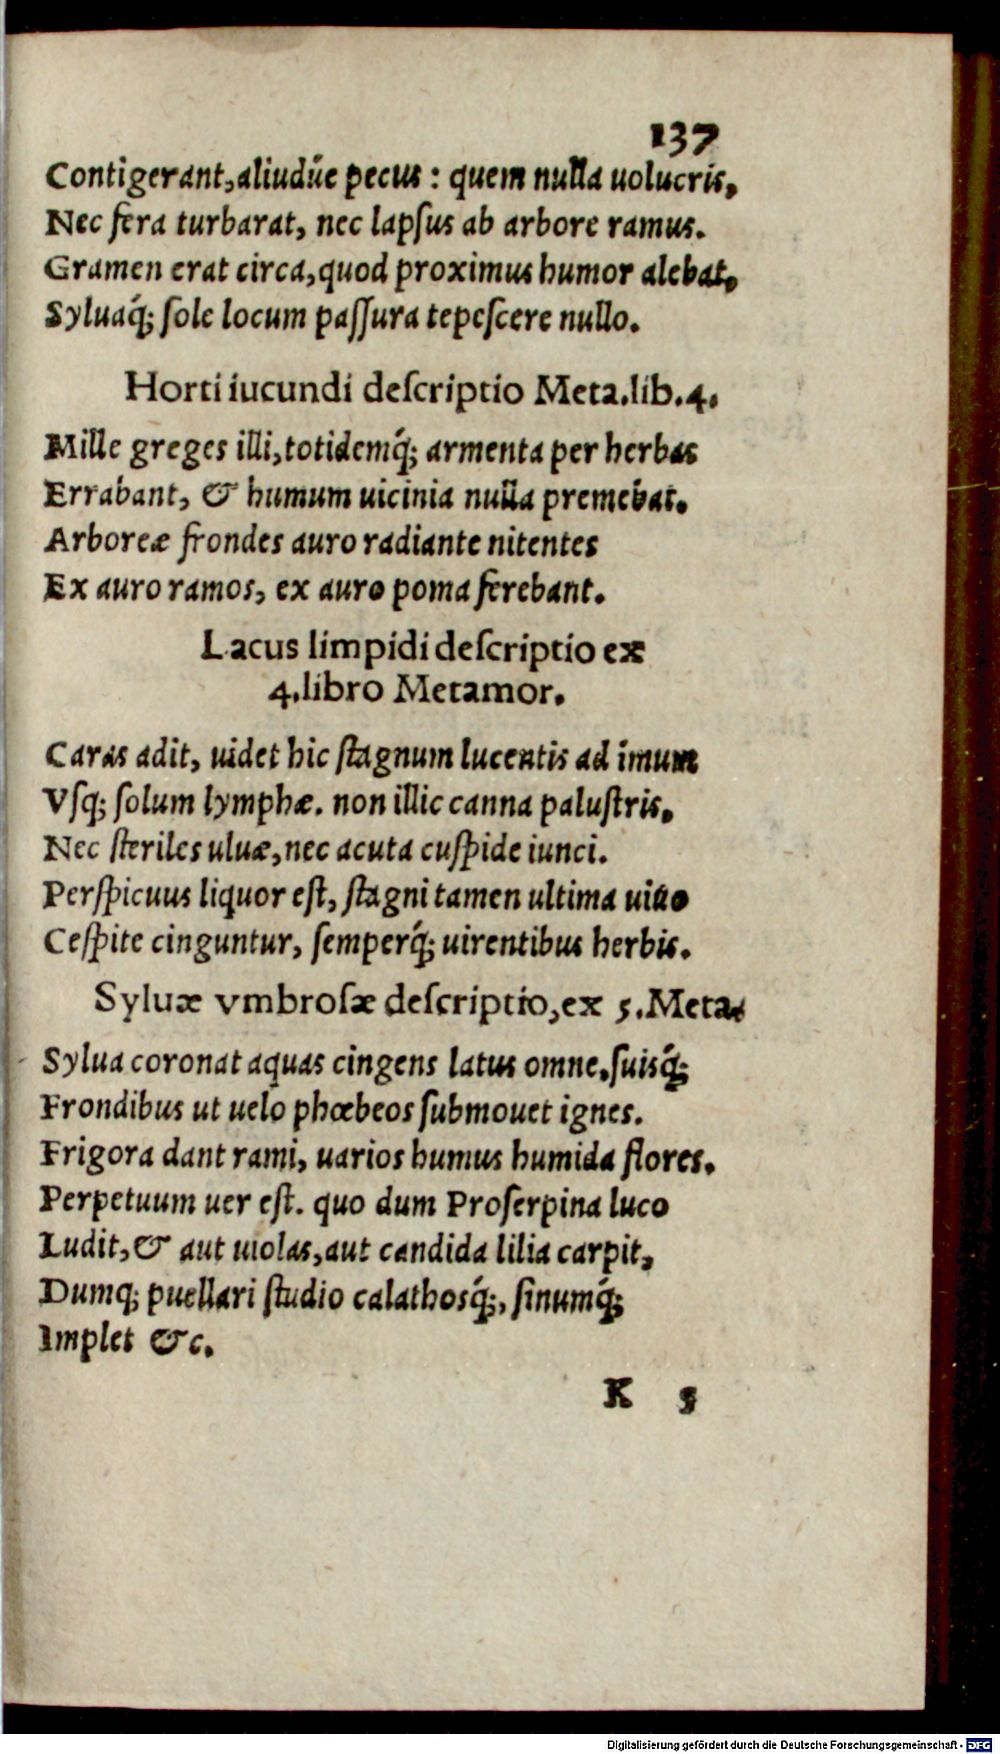 137
Contigerant, aliudúe pecus : quem nulla uolucris,
Nec fera turbarat, nec lapſus ab arbore ramus.
Gramen erat circa, quod proximus humor alebat,
Syluaq́; ſole locum paſſura tepeſcere nullo.
Horti iucundi deſcriptio Meta.lib.4.
Mille greges illi, totidemq́; armenta per herbas
Errabant, & humum uicinia nulla premebat.
Arboreæ frondes auro radiante nitentes
Ex auro ramos, ex auro poma ferebant.
Lacus limpidi deſcriptio ex
4.libro Metamor.
Caras adit, uidet hic ſtagnum lucentis ad imum
Vſq; ſolum lymphæ. non illic canna paluſtris,
Nec ſteriles uluæ, nec acuta cuſpide iunci.
Perſpicuus liquor eſt, ſtagni tamen ultima uiuo
Ceſpite cinguntur, ſemperq́; uirentibus herbis.
Syluæ vmbroſæ deſcriptio, ex 5.Meta.
Sylua coronat aquas cingens latus omne, ſuisq́;
Frondibus ut uelo phœbeos ſubmouet ignes.
Frigora dant rami, uarios humus humida flores.
Perpetuum uer eſt. quo dum Proſerpina luco
Ludit, & aut uiolas, aut candida lilia carpit,
Dumq; puellari ſtudio calathosq́;, ſinumq́;
Implet &c.
K 5
Digitalisierung gefördert durch die Deutsche Forschungsgemeinschaft - DFG